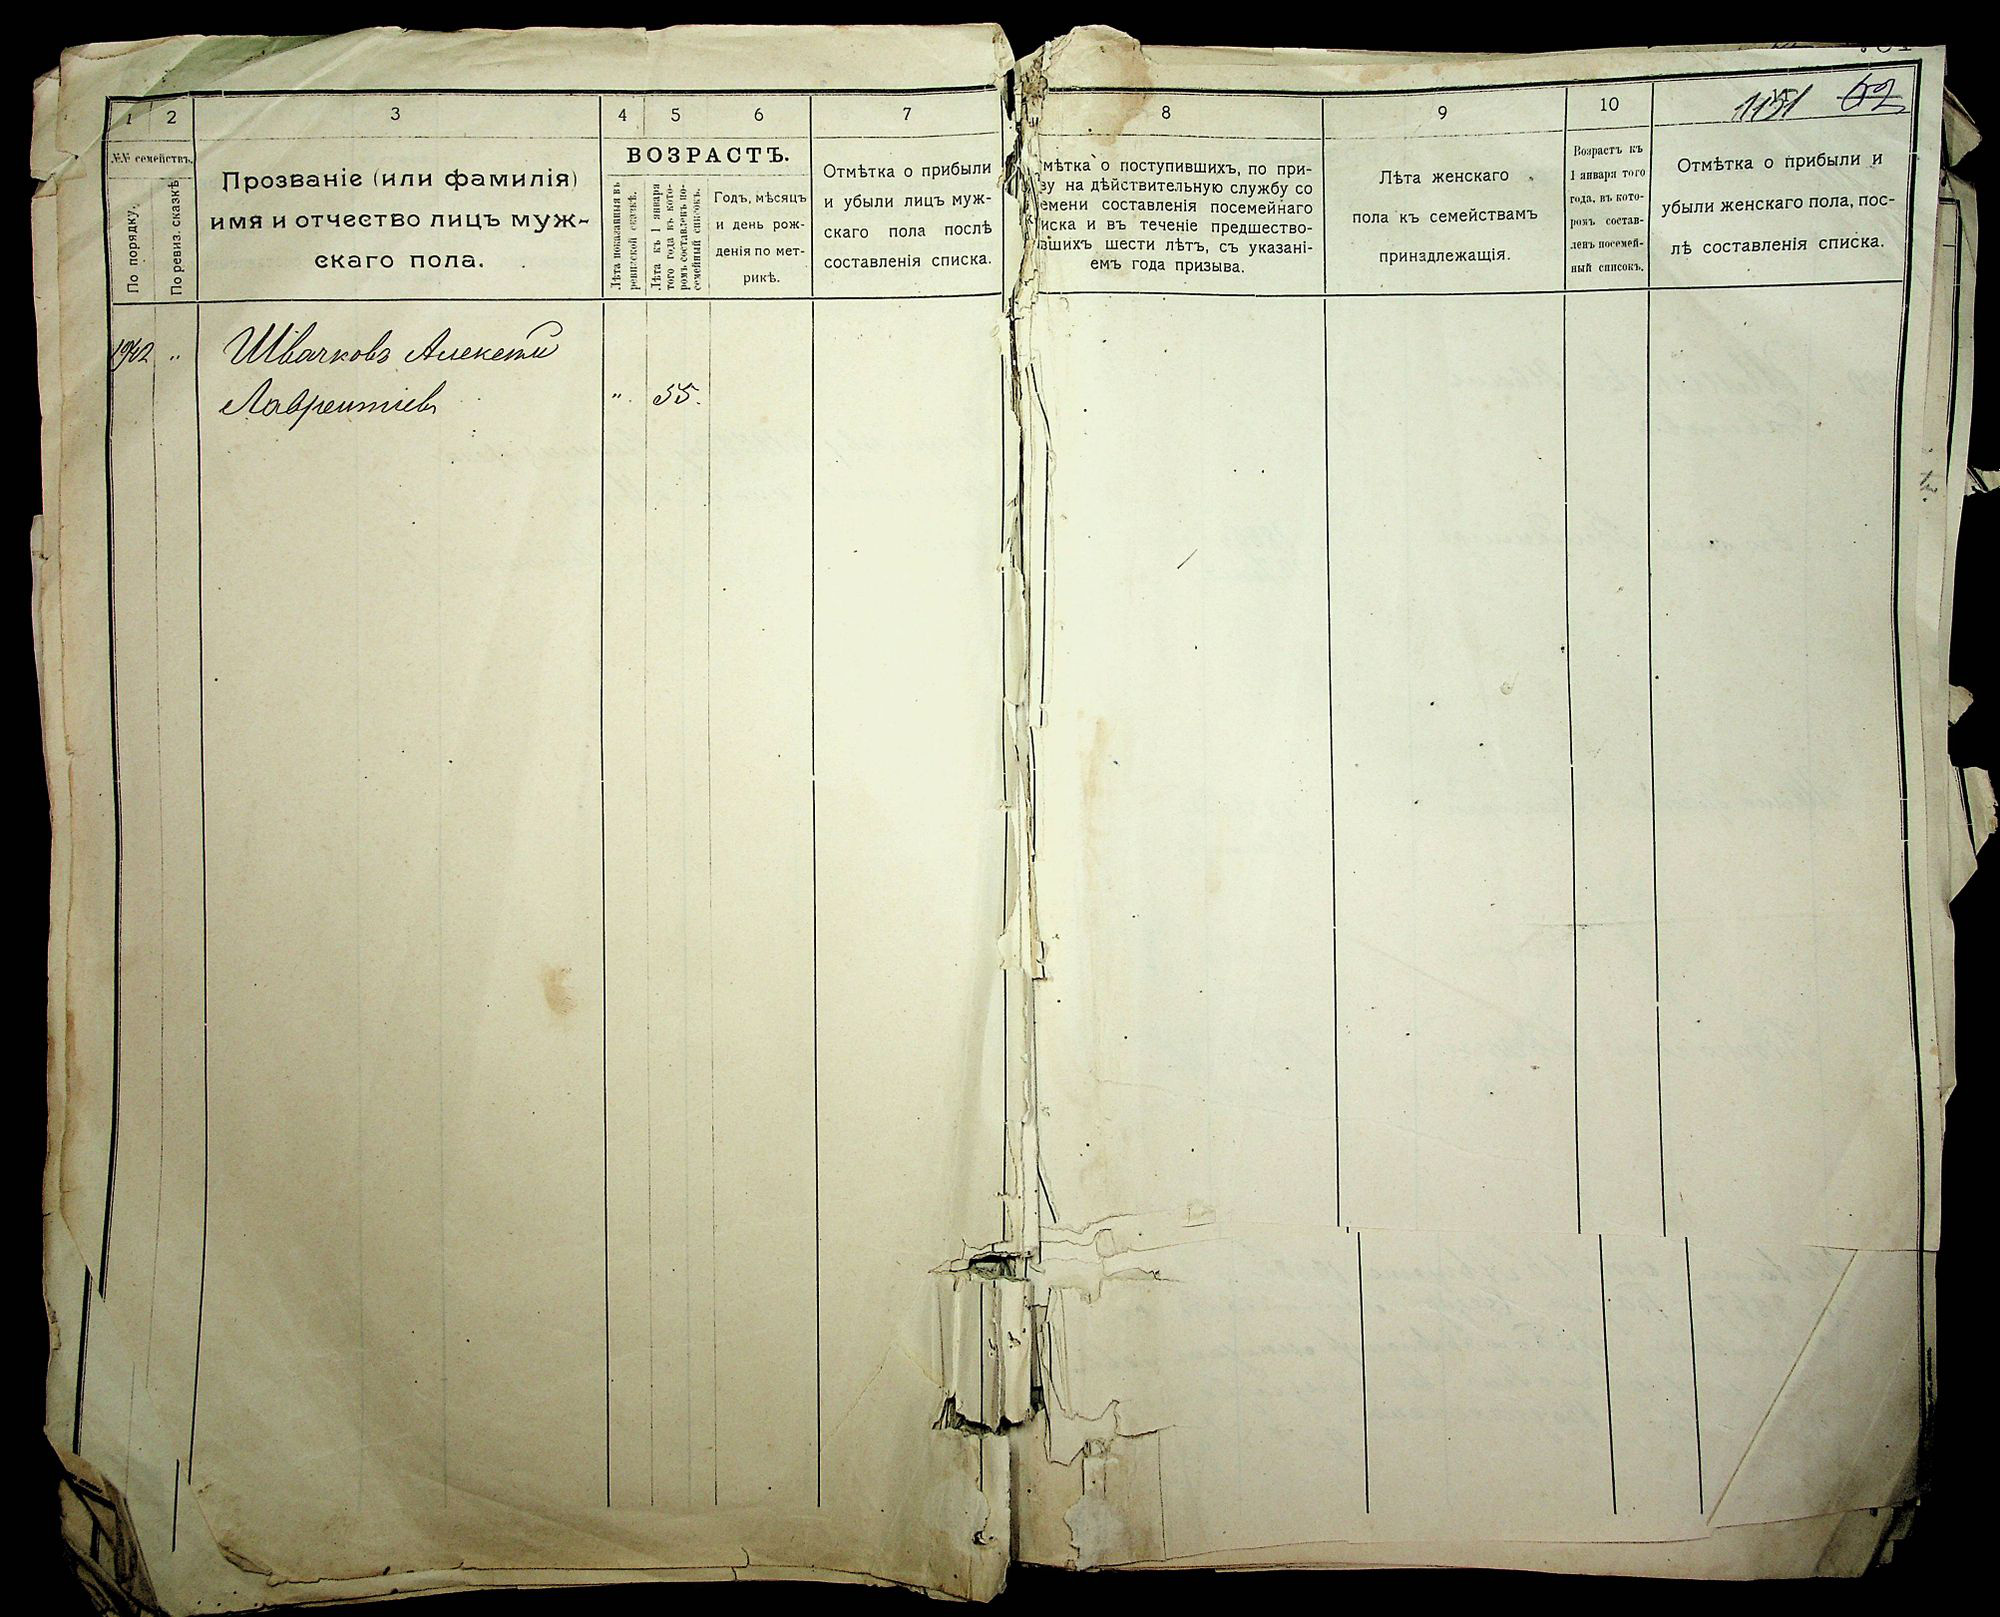 1151 62
1 2 3 4 5 6 7
№№ семействъ.
По порядку.
По ревиз. сказкѣ
Прозваніе (или фамилія)
имя и отчество лицъ муж-
скаго пола.
ВОЗРАСТЪ.
Лѣта показанныя въ
ревизской сказкѣ.
Лѣта къ 1 января
того года въ кото-
ромъ составленъ по-
семейный списокъ.
Годъ, мѣсяцъ
и день рож-
денія по мет-
рикѣ.
Отмѣтка о прибыли
и убыли лицъ муж-
скаго пола послѣ
составленія списка.
8 9 10
мѣтка о поступившихъ, по при-
ву на дѣйствительную службу со
емени составленія посемейнаго
иска и въ теченіе предшество-
вшихъ шести лѣтъ, съ указані-
емъ года призыва.
Лѣта женскаго
пола къ семействамъ
принадлежащія.
Возрастъ къ
1 января того
года, въ кото-
ромъ состав-
ленъ посемей-
ный списокъ.
Отмѣтка о прибыли и
убыли женскаго пола, пос-
лѣ составленія списка.
1942 " Швачковъ Алексѣй
Лаврентіевъ " 55.